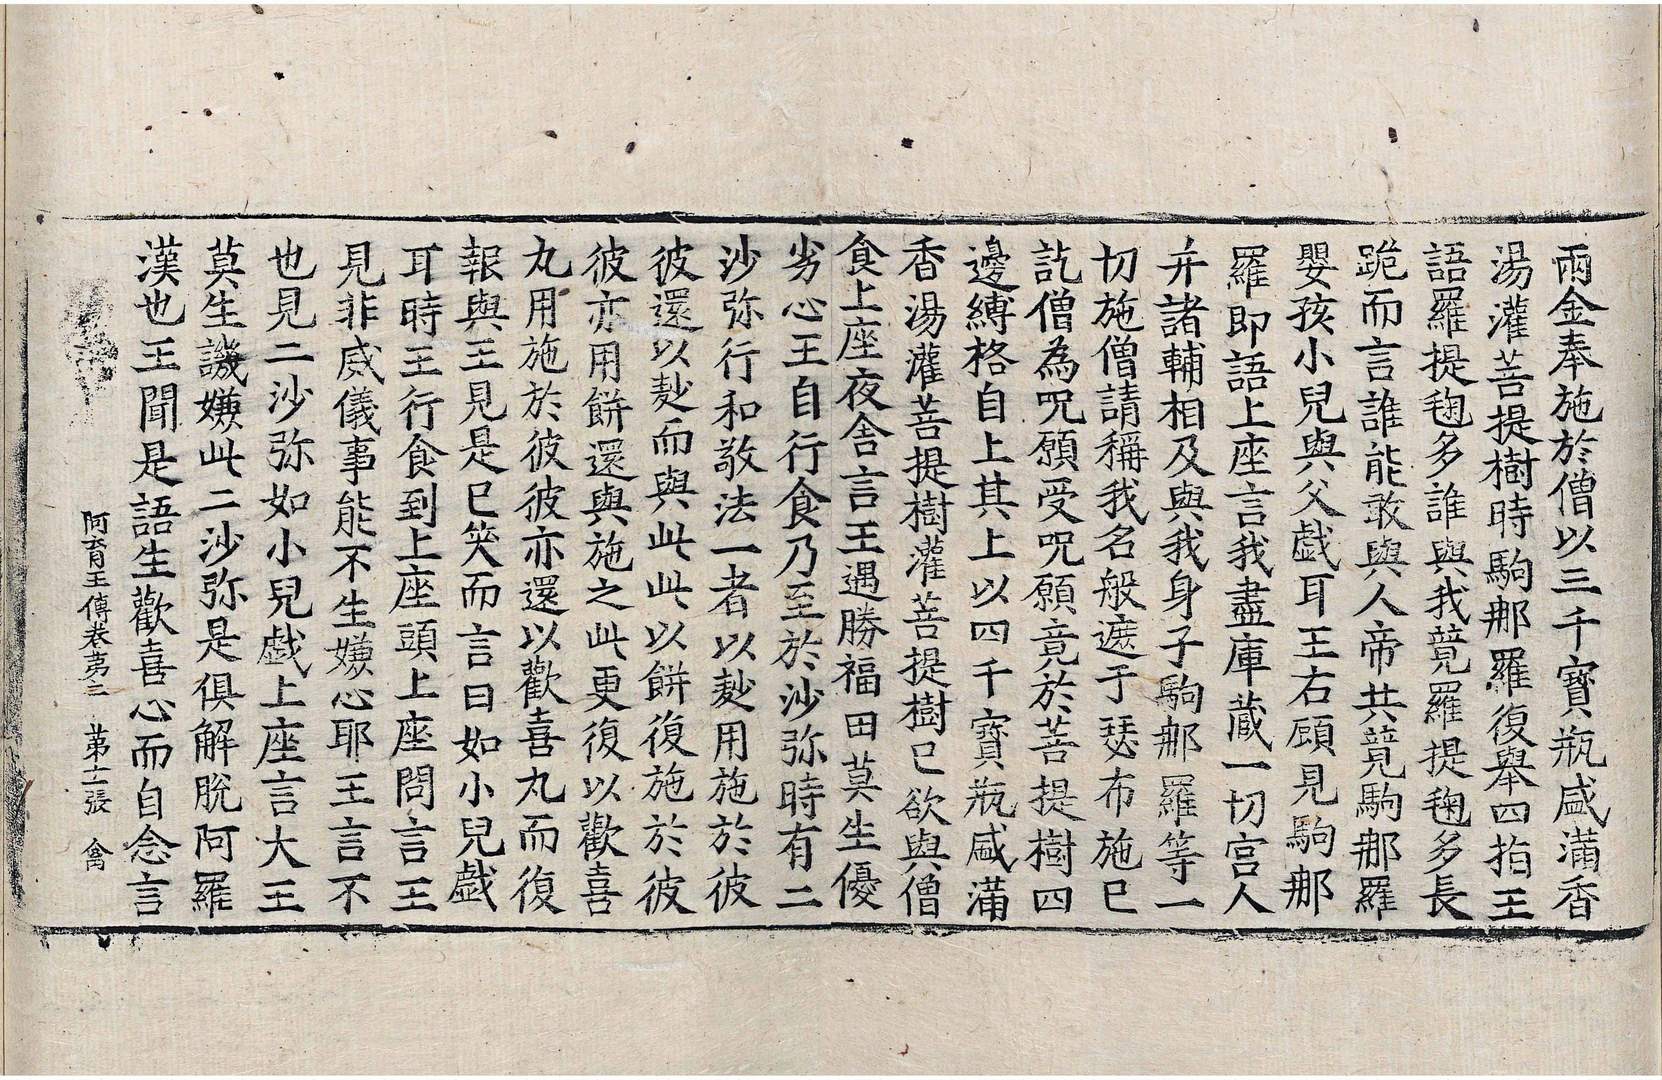 兩金奉施於僧以三千寶瓶盛滿香
湯灌菩提樹時駒那羅復舉四指王
語羅提毱多誰與我競羅提毱多長
跪而言誰能敢與人帝共競駒那羅
嬰孩小兒與父戲耳王右顧見駒那
羅即語上座言我盡庫藏一切宮人
并諸輔相及與我身子駒那羅等一
切施僧請稱我名般遮于瑟布施已
訖僧為呪願受呪願竟於菩提樹四
邊縛格自上其上以四千寶瓶盛滿
香湯灌菩提樹灌菩提樹已欲與僧
食上座夜舍言王遇勝福田莫生優
劣心王自行食乃至於沙弥時有二
沙弥行和敬法一者以麨用施於彼
彼還以麨而與此此以餅復施於彼
彼亦用餅還與施之此更復以歡喜
丸用施於彼彼亦還以歡喜丸而復
報與王見是已笑而言曰如小兒戲
耳時王行食到上座頭上座問言王
見非威儀事能不生嫌心耶王言不
也見二沙弥如小兒戲上座言大王
莫生譏嫌此二沙弥是俱解脫阿羅
漢也王聞是語生歡喜心而自念言
阿育王傳卷第三 第十一張 禽